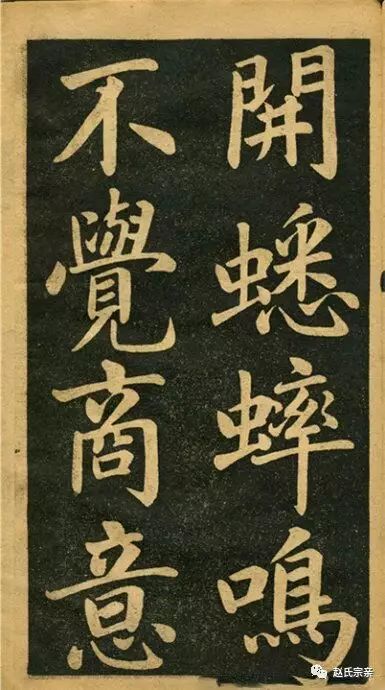 開蟋蟀鳴
不覺商意
赵氏宗亲